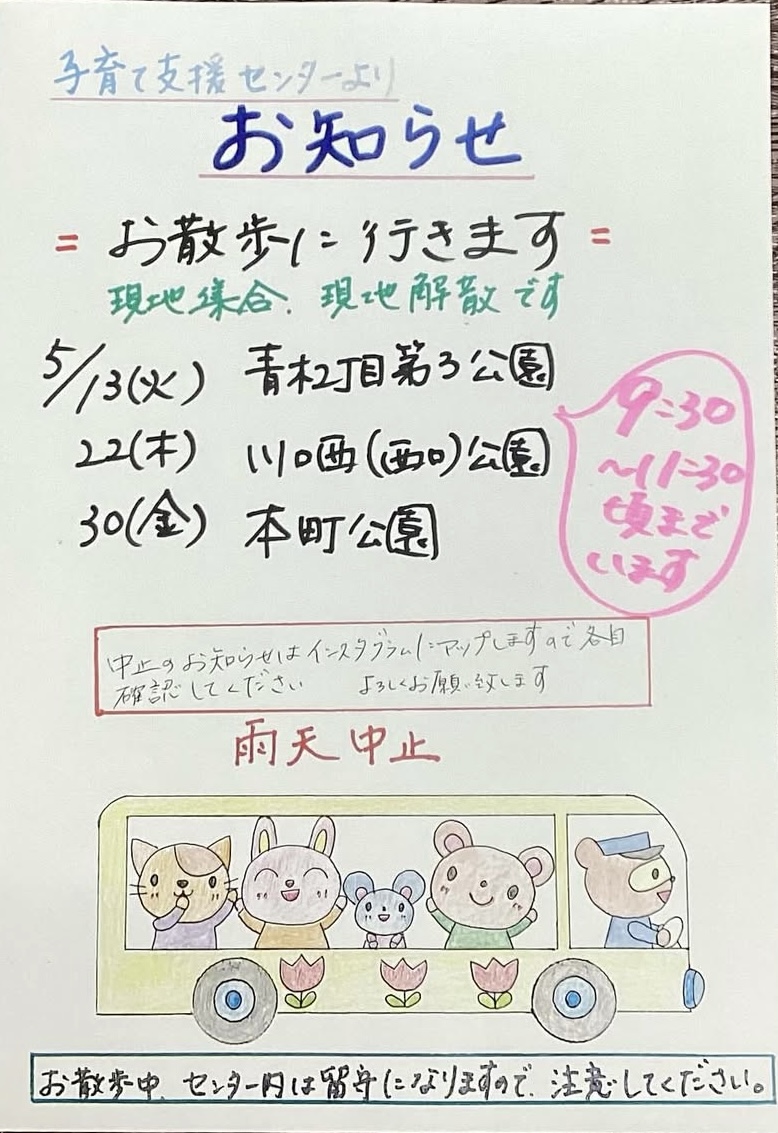 子育て支援センターより
お知らせ
= お散歩に行きます =
現地集合、現地解散です
5/13(火) 青木2丁目第3公園
22(木) 川口西(西口)公園
30(金) 本町公園
9:30
～11:30
頃まで
います
中止のお知らせはインスタグラムにアップしますので各自
確認してください よろしくお願い致します
雨天中止
お散歩中、センター内は留守になりますので、注意してください。